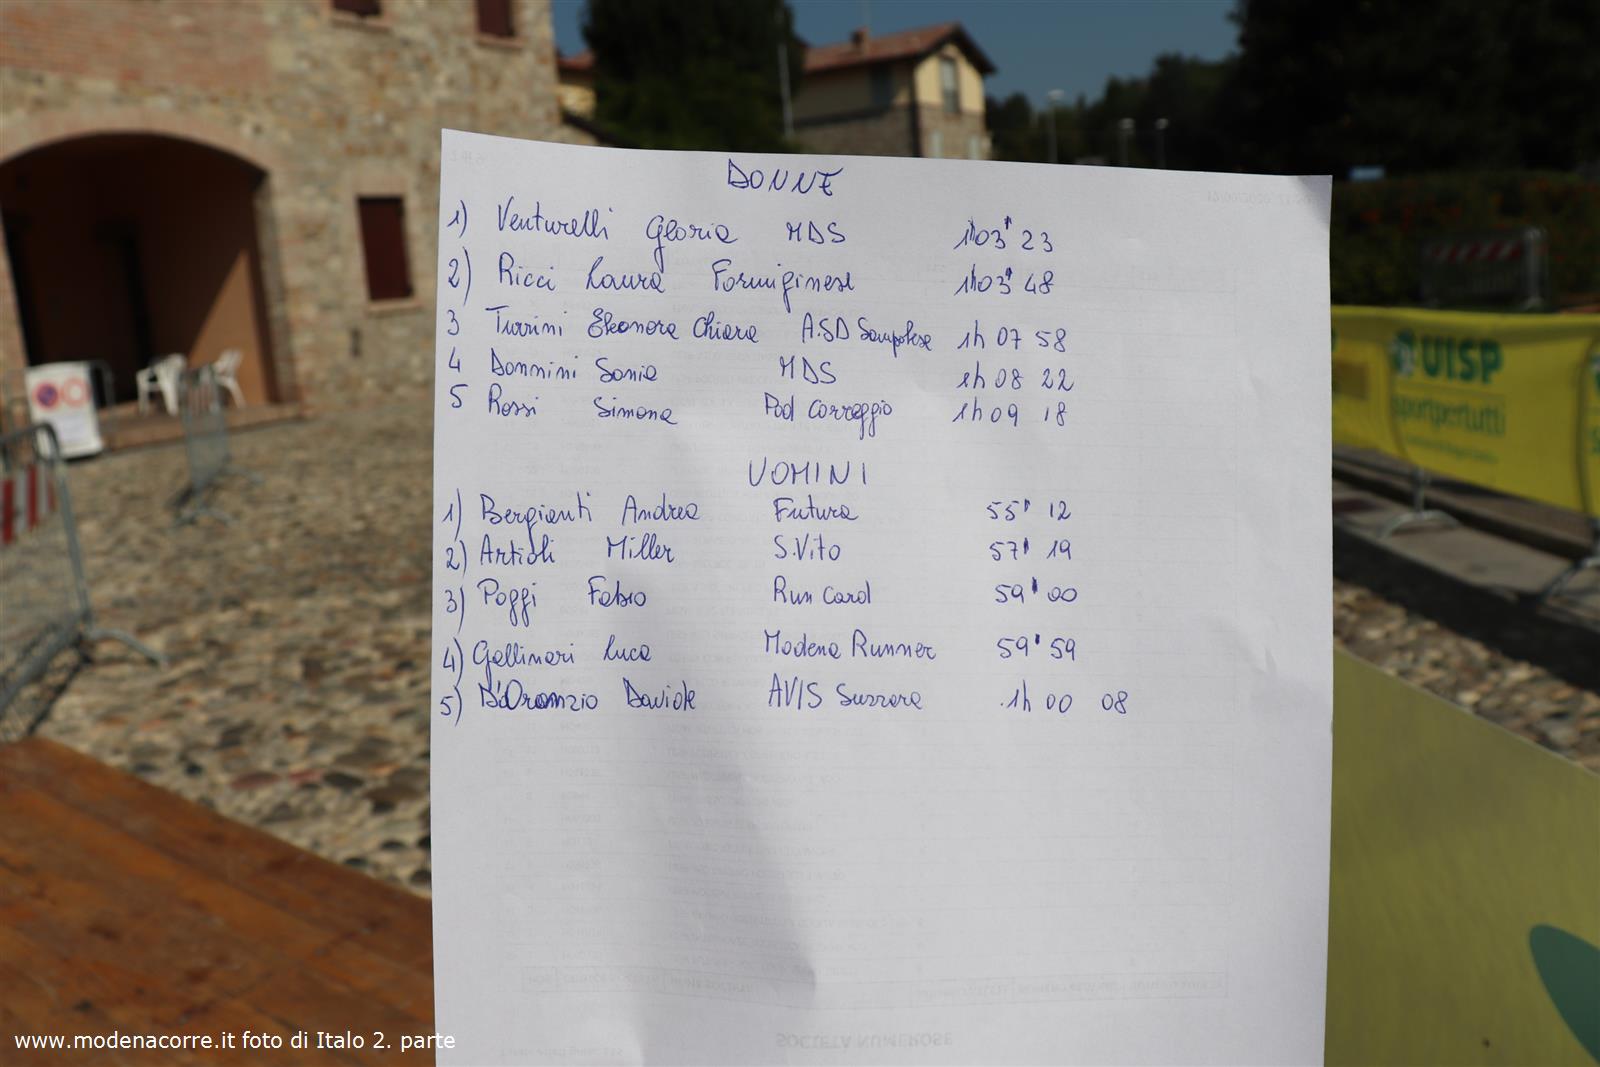 DONNE
1) Venturelli Gloria MDS 1h03' 23
2) Ricci Laura Formiginese 1h03' 48
3 Turrini Eleonora Chiara A.S.D Sampolese 1h 07 58
4 Donnini Sonia MDS 1h 08 22
5 Rossi Simona Pod Correggio 1h 09 18
UOMINI
1) Bergianti Andrea Futura 55' 12
2) Artioli Miller S.Vito 57' 19
3) Poggi Fabio Run Card 59' 00
4) Gallinari Luca Modena Runner 59' 59
5) D'Oranzio Davide AVIS Suzzara 1h 00 08
UISP
sportpertutti
SOCIETÀ NUMEROSE
www.modenacorre.it foto di Italo 2. parte